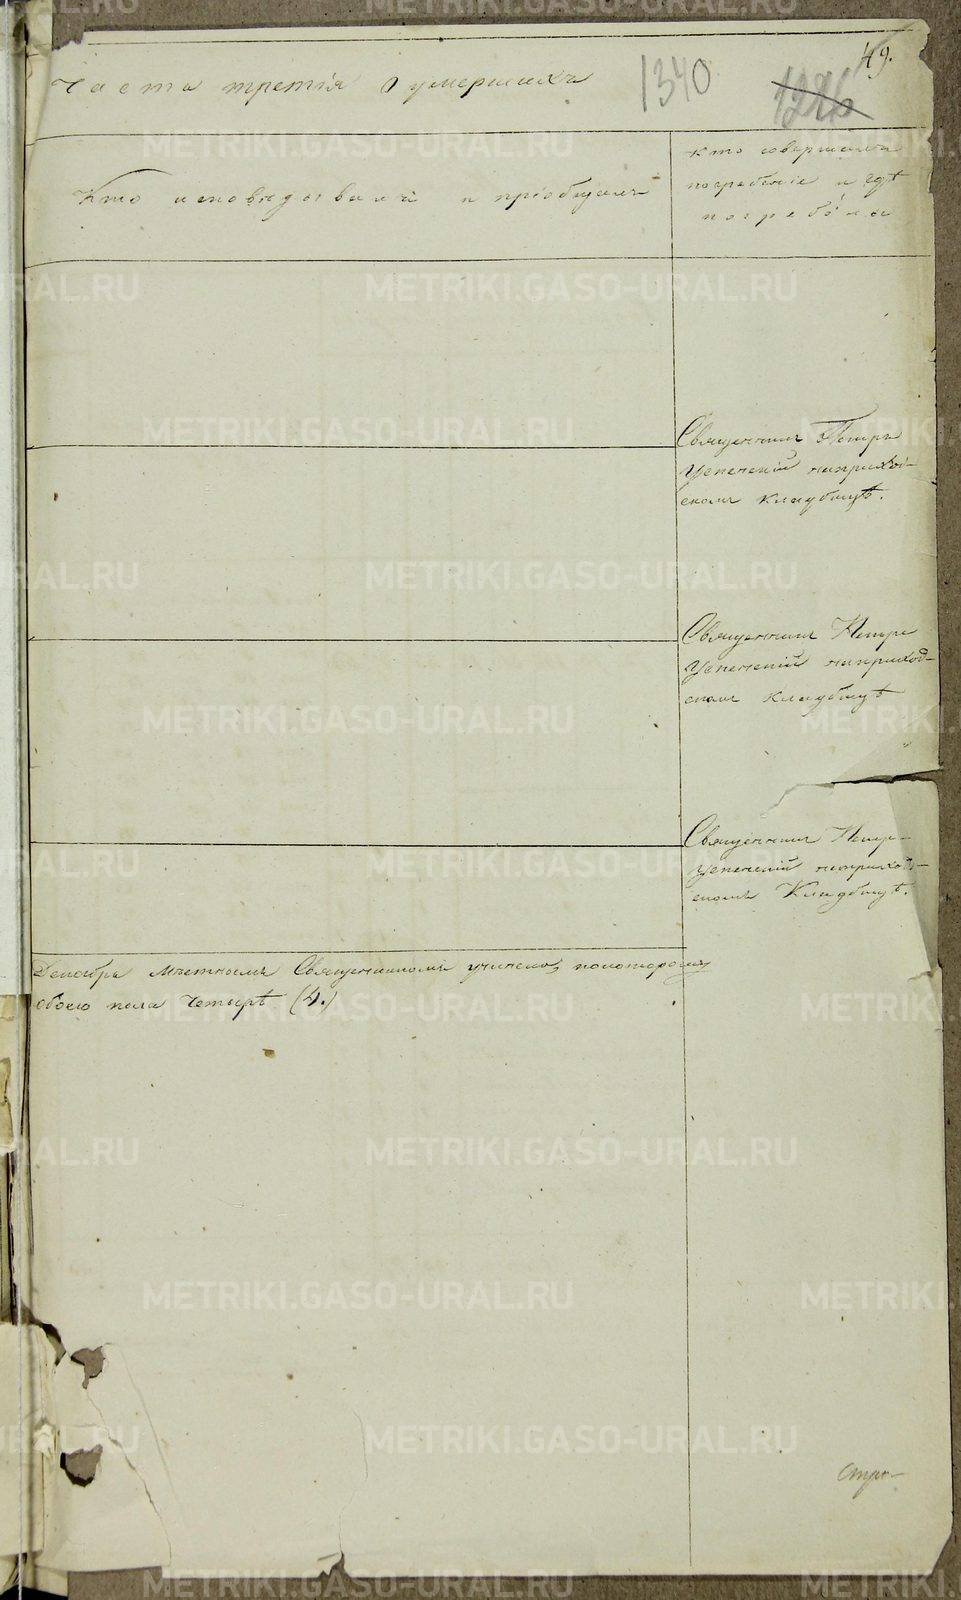 49.
1340
1226
Часть третія О умершихъ
Кто исповѣдовалъ и пріобщалъ
кто совершалъ
погребеніе и гдѣ
погребены
Священникъ Петръ
Успенскій наприход-
скомъ кладбищѣ.
Священникъ Петръ
Успенскій наприход-
скомъ кладбищѣ
Священникъ Петръ
Успенскій наприход-
скомъ Кладбищѣ.
Декабрь мѣстнымъ Священникомъ учинено, покоторому
обоего пола Четырѣ (4.)
METRIKI.GASO-URAL.RU